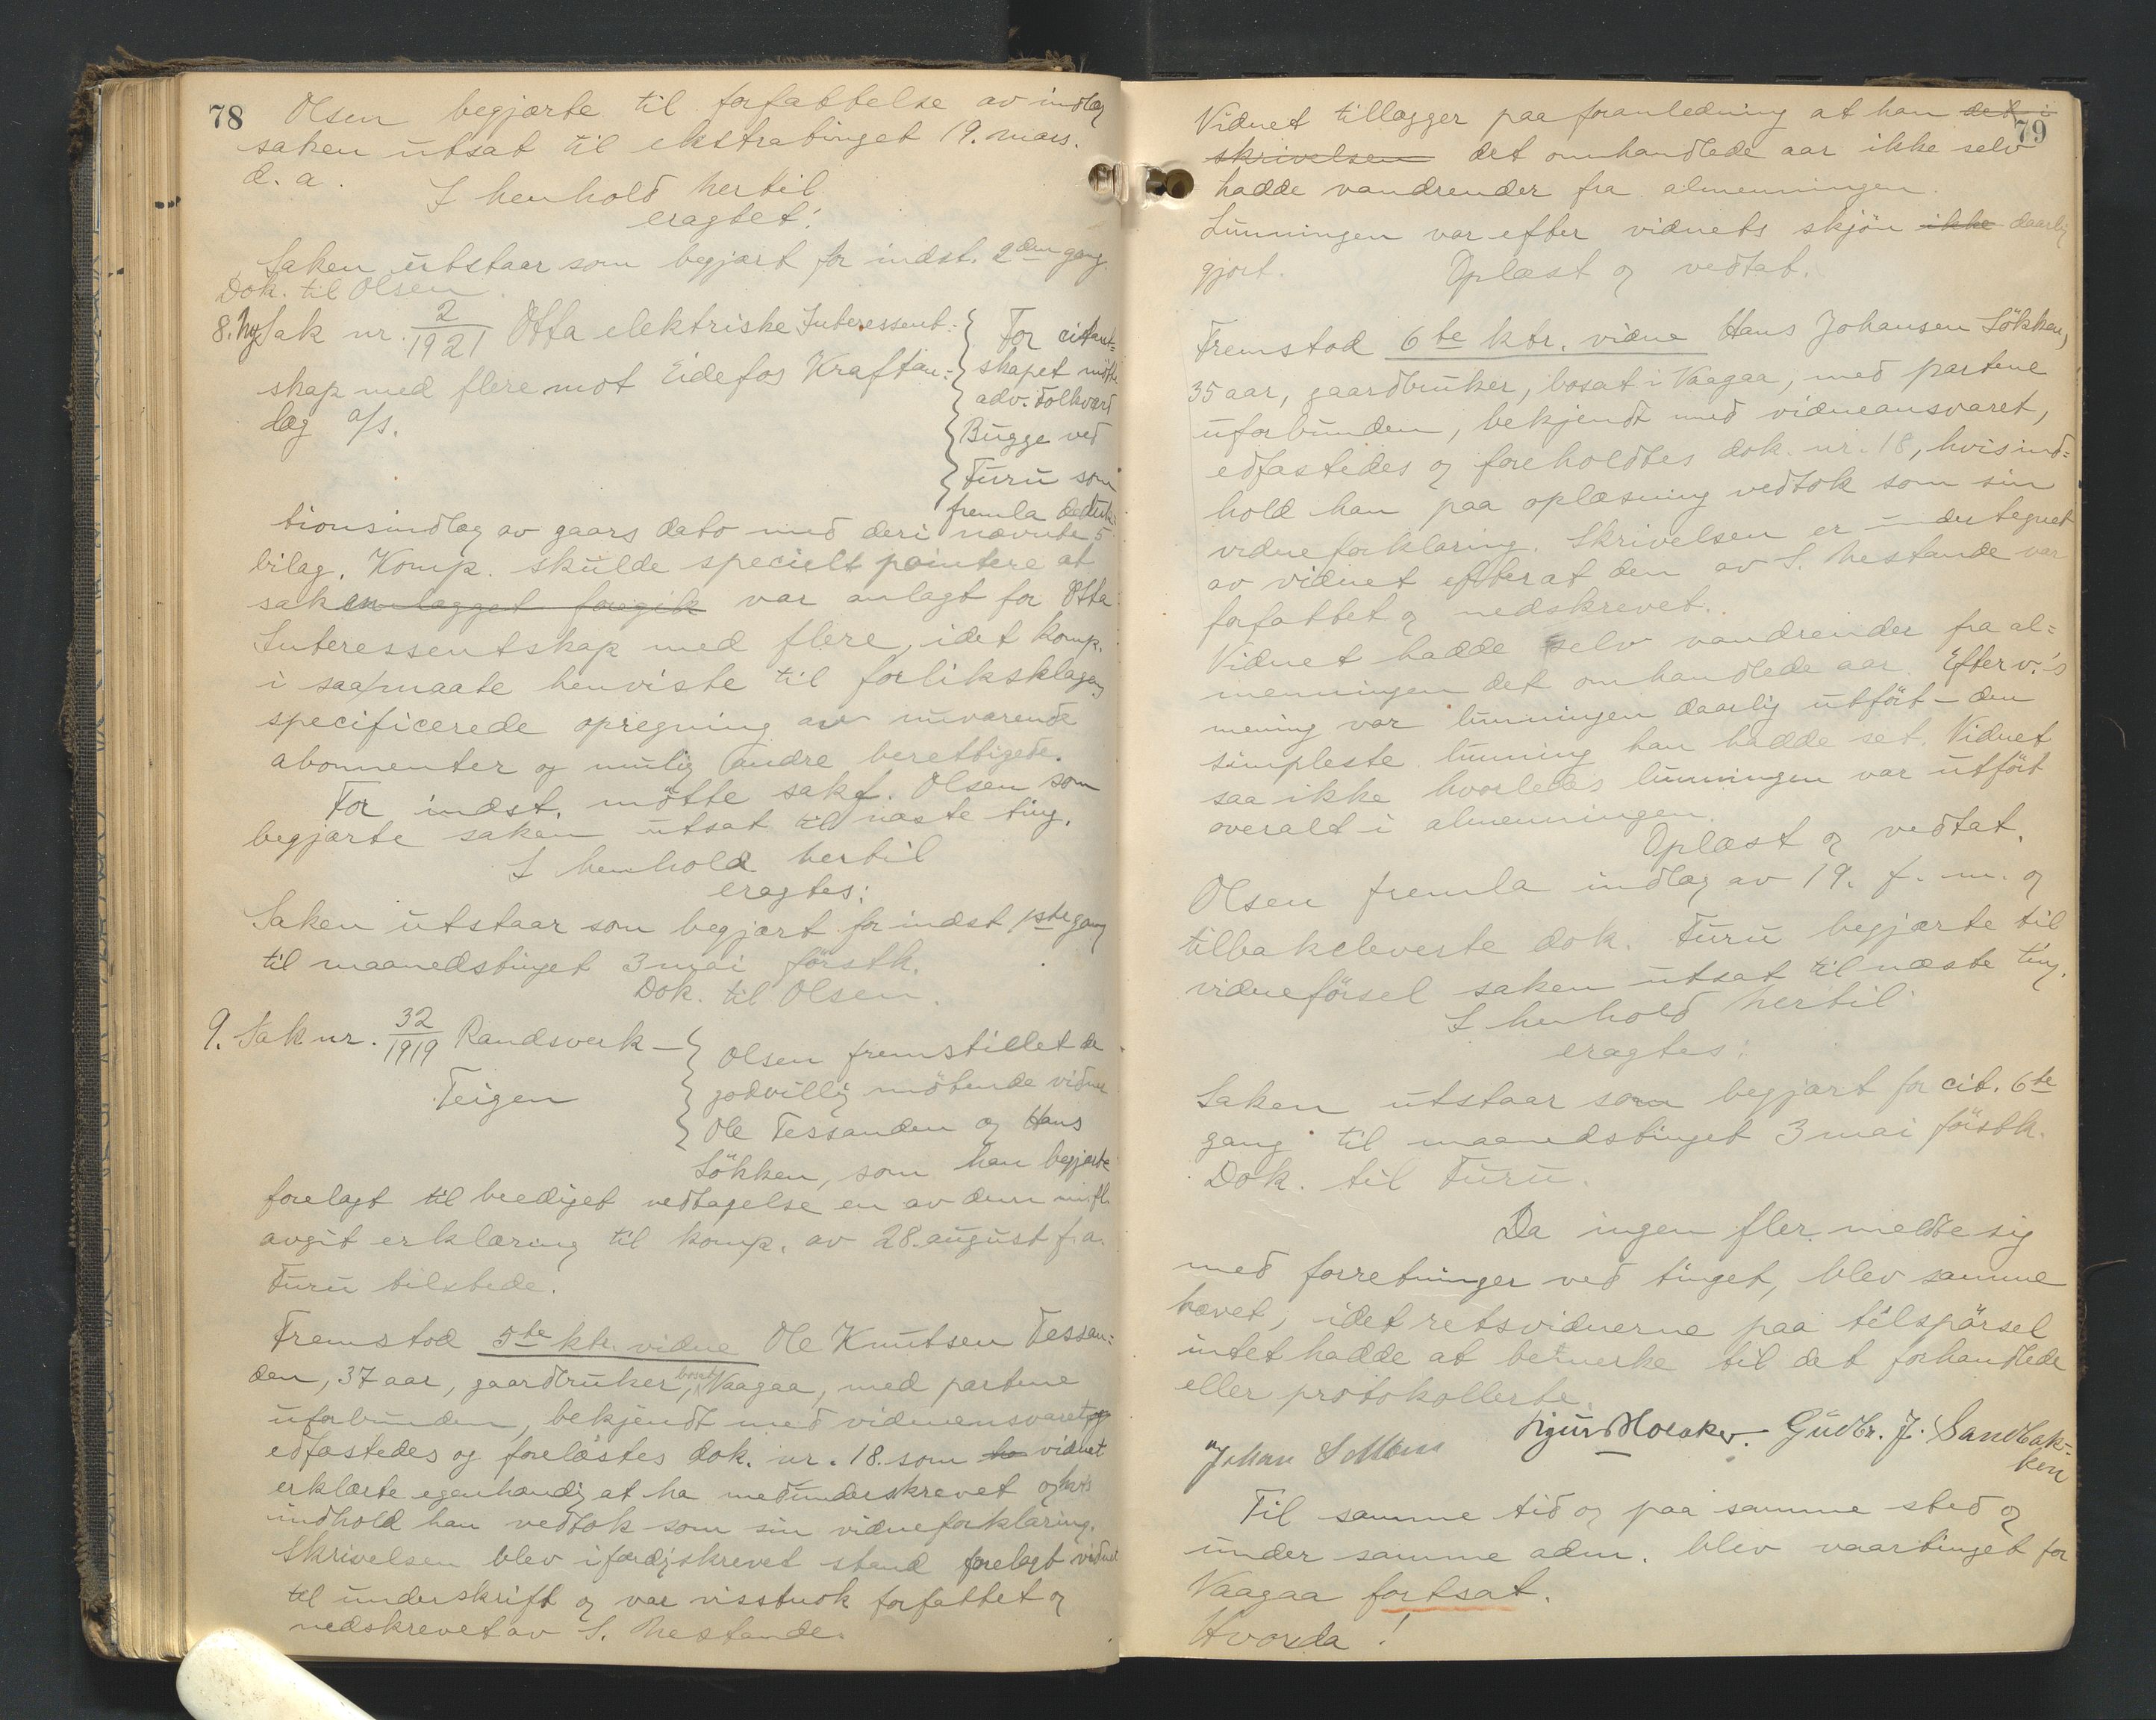 78
Olsen begjærte til forfattelse av indlæg
saken utsat til ekstratinget 19. mars.
d. a.
I henhold hertil
eragtet:
Saken utstaar som begjært for indst. 2den gang.
Dok. til Olsen.
8. Ny Sak nr. 2/1921 Otta elektriske Interessent=
skap med flere mot Eidefos Kraftan=
læg a/s.
For citant=
skapet mötte
adv. Folkvard
Bugge ved
Furu som
fremla deduk=
tionsindlæg av gaars dato med deri nævnte 5
bilag. Komp. skulde specielt pointere at
saken lagget foregik var anlagt for Otta
Interessentskap med flere, idet komp.
i saa maate henviste til forliksklagens
specificerede opregning av nuværende
abonnenter og mulig andre berettigede.
For indst. mötte sakf. Olsen som
begjærte saken utsat til næste ting.
I henhold hertil
eragtes:
Saken utstaar som begjært for indst 1ste gang
til maanedstinget 3 mai förstk.
Dok. til Olsen.
9. Sak nr. 32/1919 Randsverk –
Teigen
Olsen fremstillet de
godvillig mötende vidner
Ole Tessanden og Hans
Lökken, som han begjærte
forelagt til beediget vedtagelse en av dem m. fl.
avgit erklæring til komp. av 28. august f. a.
Furu tilstede.
Fremstod 5te ktr. vidne Ole Knutsen Tessan=
den, 37 aar, gaardbruker, bosat Vaagaa, med partene
uforbunden, bekjendt med vidneansvaret og
edfæstedes og forelæstes dok. nr. 18. som ha vidnet
erklærte egenhændig at ha medunderskrevet og hvis
indhold han vedtok som sin vidneforklaring.
Skrivelsen blev i færdigskrevet stand forelagt vidnet
til underskrift og var visstnok forfattet og
nedskrevet av S. Nestande.
79
Vidnet tillægger paa foranledning at han det i
skrivelsen det omhandlede aar ikke selv
hadde vandrender fra almenningen.
Lunningen var efter vidnets skjön ikke daarlig
gjort. Oplæst og vedtat.
Fremstod 6te ktr. vidne Hans Johansen Lökken,
35 aar, gaardbruker, bosat i Vaagaa, med partene
uforbunden, bekjendt med vidneansvaret,
edfæstedes og foreholdtes dok. nr. 18, hvis ind=
hold han paa oplæsning vedtok som sin
vidneforklaring. Skrivelsen er undertegnet
av vidnet efterat den av S. Nestande var
forfattet og nedskrevet.
Vidnet hadde selv vandrender fra al=
menningen det omhandlede aar. Efter v.'s
mening var lunningen daarlig utfört – den
simpleste lunning han hadde set. Vidnet
saa ikke hvorledes lunningen var utfört
overalt i almenningen.
Oplæst og vedtat.
Olsen fremla indlæg av 19. f. m. og
tilbakeleverte dok. Furu begjærte til
vidneförsel saken utsat til næste ting.
I henhold hertil
eragtes:
Saken utstaar som begjært for cit. 6te
gang til maanedstinget 3 mai förstk.
Dok. til Furu.
Da ingen fler meldte sig
med forretninger ved tinget, blev samme
hævet, idet retsvidnerne paa tilspörsel
intet hadde at bemerke til det forhandlede
eller protokollerte.
Sigurd Hosaker. Gudbr. J. Sandbak=
ken
Johan
Til samme tid og paa samme sted og
under samme adm. blev vaartinget for
Vaagaa fortsat.
Hvorda!